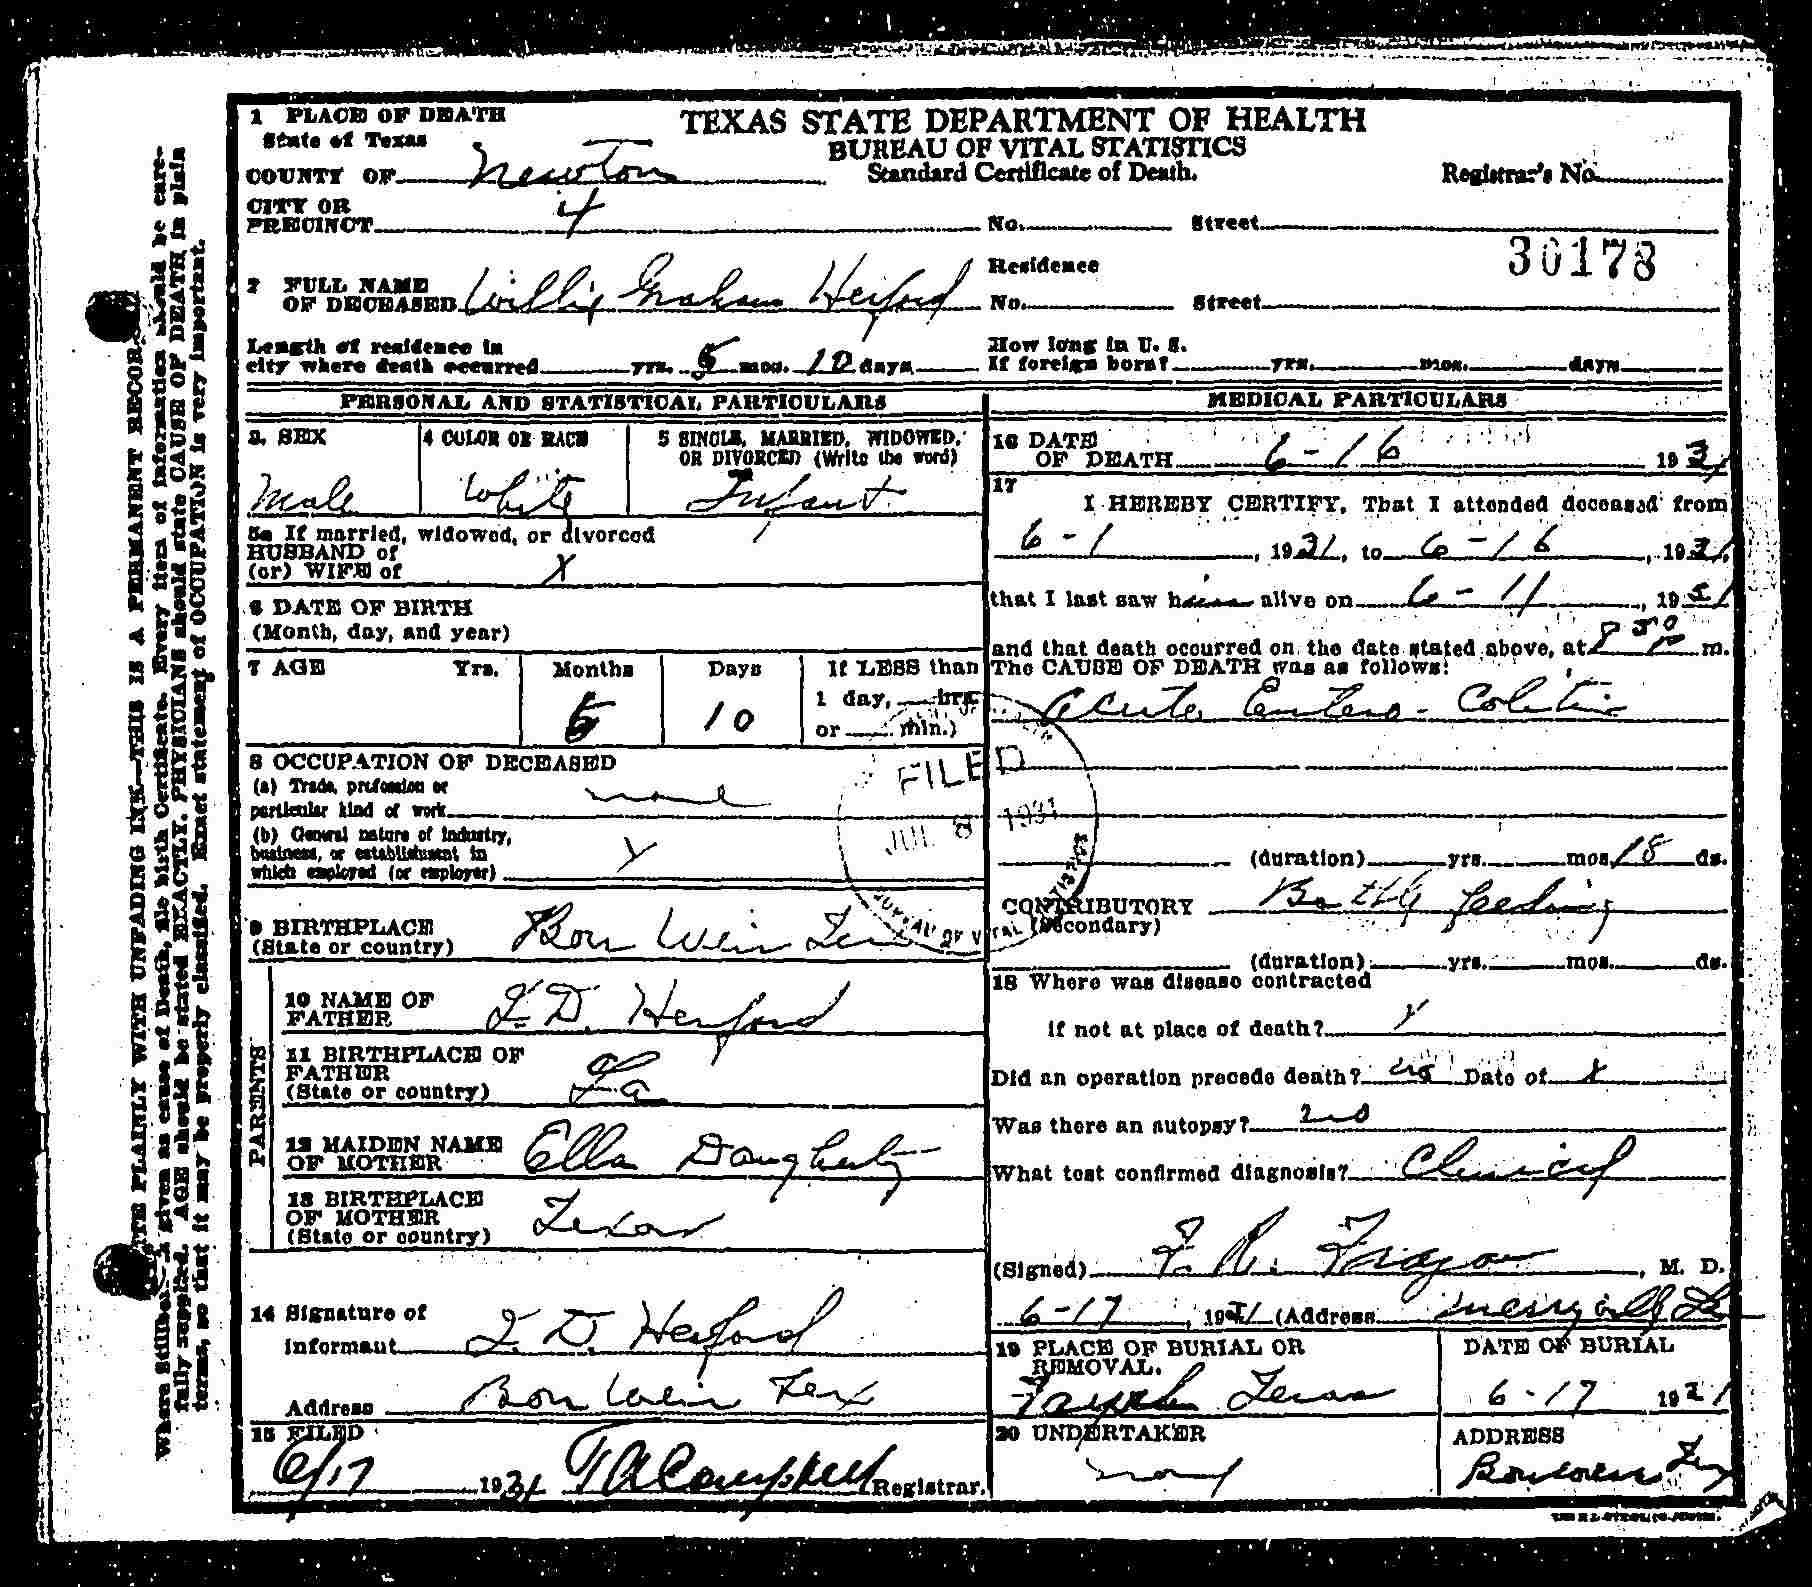 1 PLACE OF DEATH
State of Texas
COUNTY OF Newton
CITY OR
PRECINCT 4
TEXAS STATE DEPARTMENT OF HEALTH
BUREAU OF VITAL STATISTICS
Standard Certificate of Death.
Registrar's No.
No. Street
30178
2 FULL NAME
OF DECEASED Willie Graham Herford
Residence
No. Street
Length of residence in
city where death occurred yrs. 5 mos. 10 days
How long in U. S.
If foreign born? yrs. mos. days
PERSONAL AND STATISTICAL PARTICULARS
3. SEX
Male
4 COLOR OR RACE
White
5 SINGLE, MARRIED, WIDOWED,
OR DIVORCED (Write the word)
Infant
5a If married, widowed, or divorced
HUSBAND of
(or) WIFE of X
6 DATE OF BIRTH
(Month, day, and year)
7 AGE Yrs. Months Days If LESS than
1 day, hrs.
5 10 or min.)
8 OCCUPATION OF DECEASED
(a) Trade, profession or
particular kind of work none
(b) General nature of industry,
business, or establishment in
which employed (or employer)
9 BIRTHPLACE
(State or country) Bon Weir Tex
PARENTS
10 NAME OF
FATHER D. Herford
11 BIRTHPLACE OF
FATHER
(State or country) La
12 MAIDEN NAME
OF MOTHER Ella Daugherty
13 BIRTHPLACE
OF MOTHER
(State or country) Texas
14 Signature of
informant D. Herford
Address Bon Weir Tex
15 FILED
6/17 1931 T A Campbell Registrar.
MEDICAL PARTICULARS
16 DATE
OF DEATH 6-16 1931
17
I HEREBY CERTIFY, That I attended deceased from
6-1, 1931, to 6-16, 1931,
that I last saw him alive on 6-11, 1931
and that death occurred on the date stated above, at 8 30 P m.
The CAUSE OF DEATH was as follows:
Acute Entero-Colitis
(duration) yrs. mos. 18 ds.
CONTRIBUTORY Bottle feeding
(Secondary)
(duration) yrs. mos. ds.
18 Where was disease contracted
if not at place of death?
Did an operation precede death? no Date of X
Was there an autopsy? no
What test confirmed diagnosis? Clinical
(Signed) R., M. D.
6-17, 1931 (Address Merryville La
19 PLACE OF BURIAL OR
REMOVAL.
Texas
DATE OF BURIAL
6-17 1931
20 UNDERTAKER
none
ADDRESS
Bon Weir Tex
FILED
JUL 8 1931
BUREAU OF VITAL STATISTICS
WRITE PLAINLY WITH UNFADING INK—THIS IS A PERMANENT RECORD
Where Stillborn is given as cause of Death, file birth Certificate. Every item of information should be care-
fully supplied. AGE should be stated EXACTLY. PHYSICIANS should state CAUSE OF DEATH in plain
terms, so that it may be properly classified. Exact statement of OCCUPATION is very important.